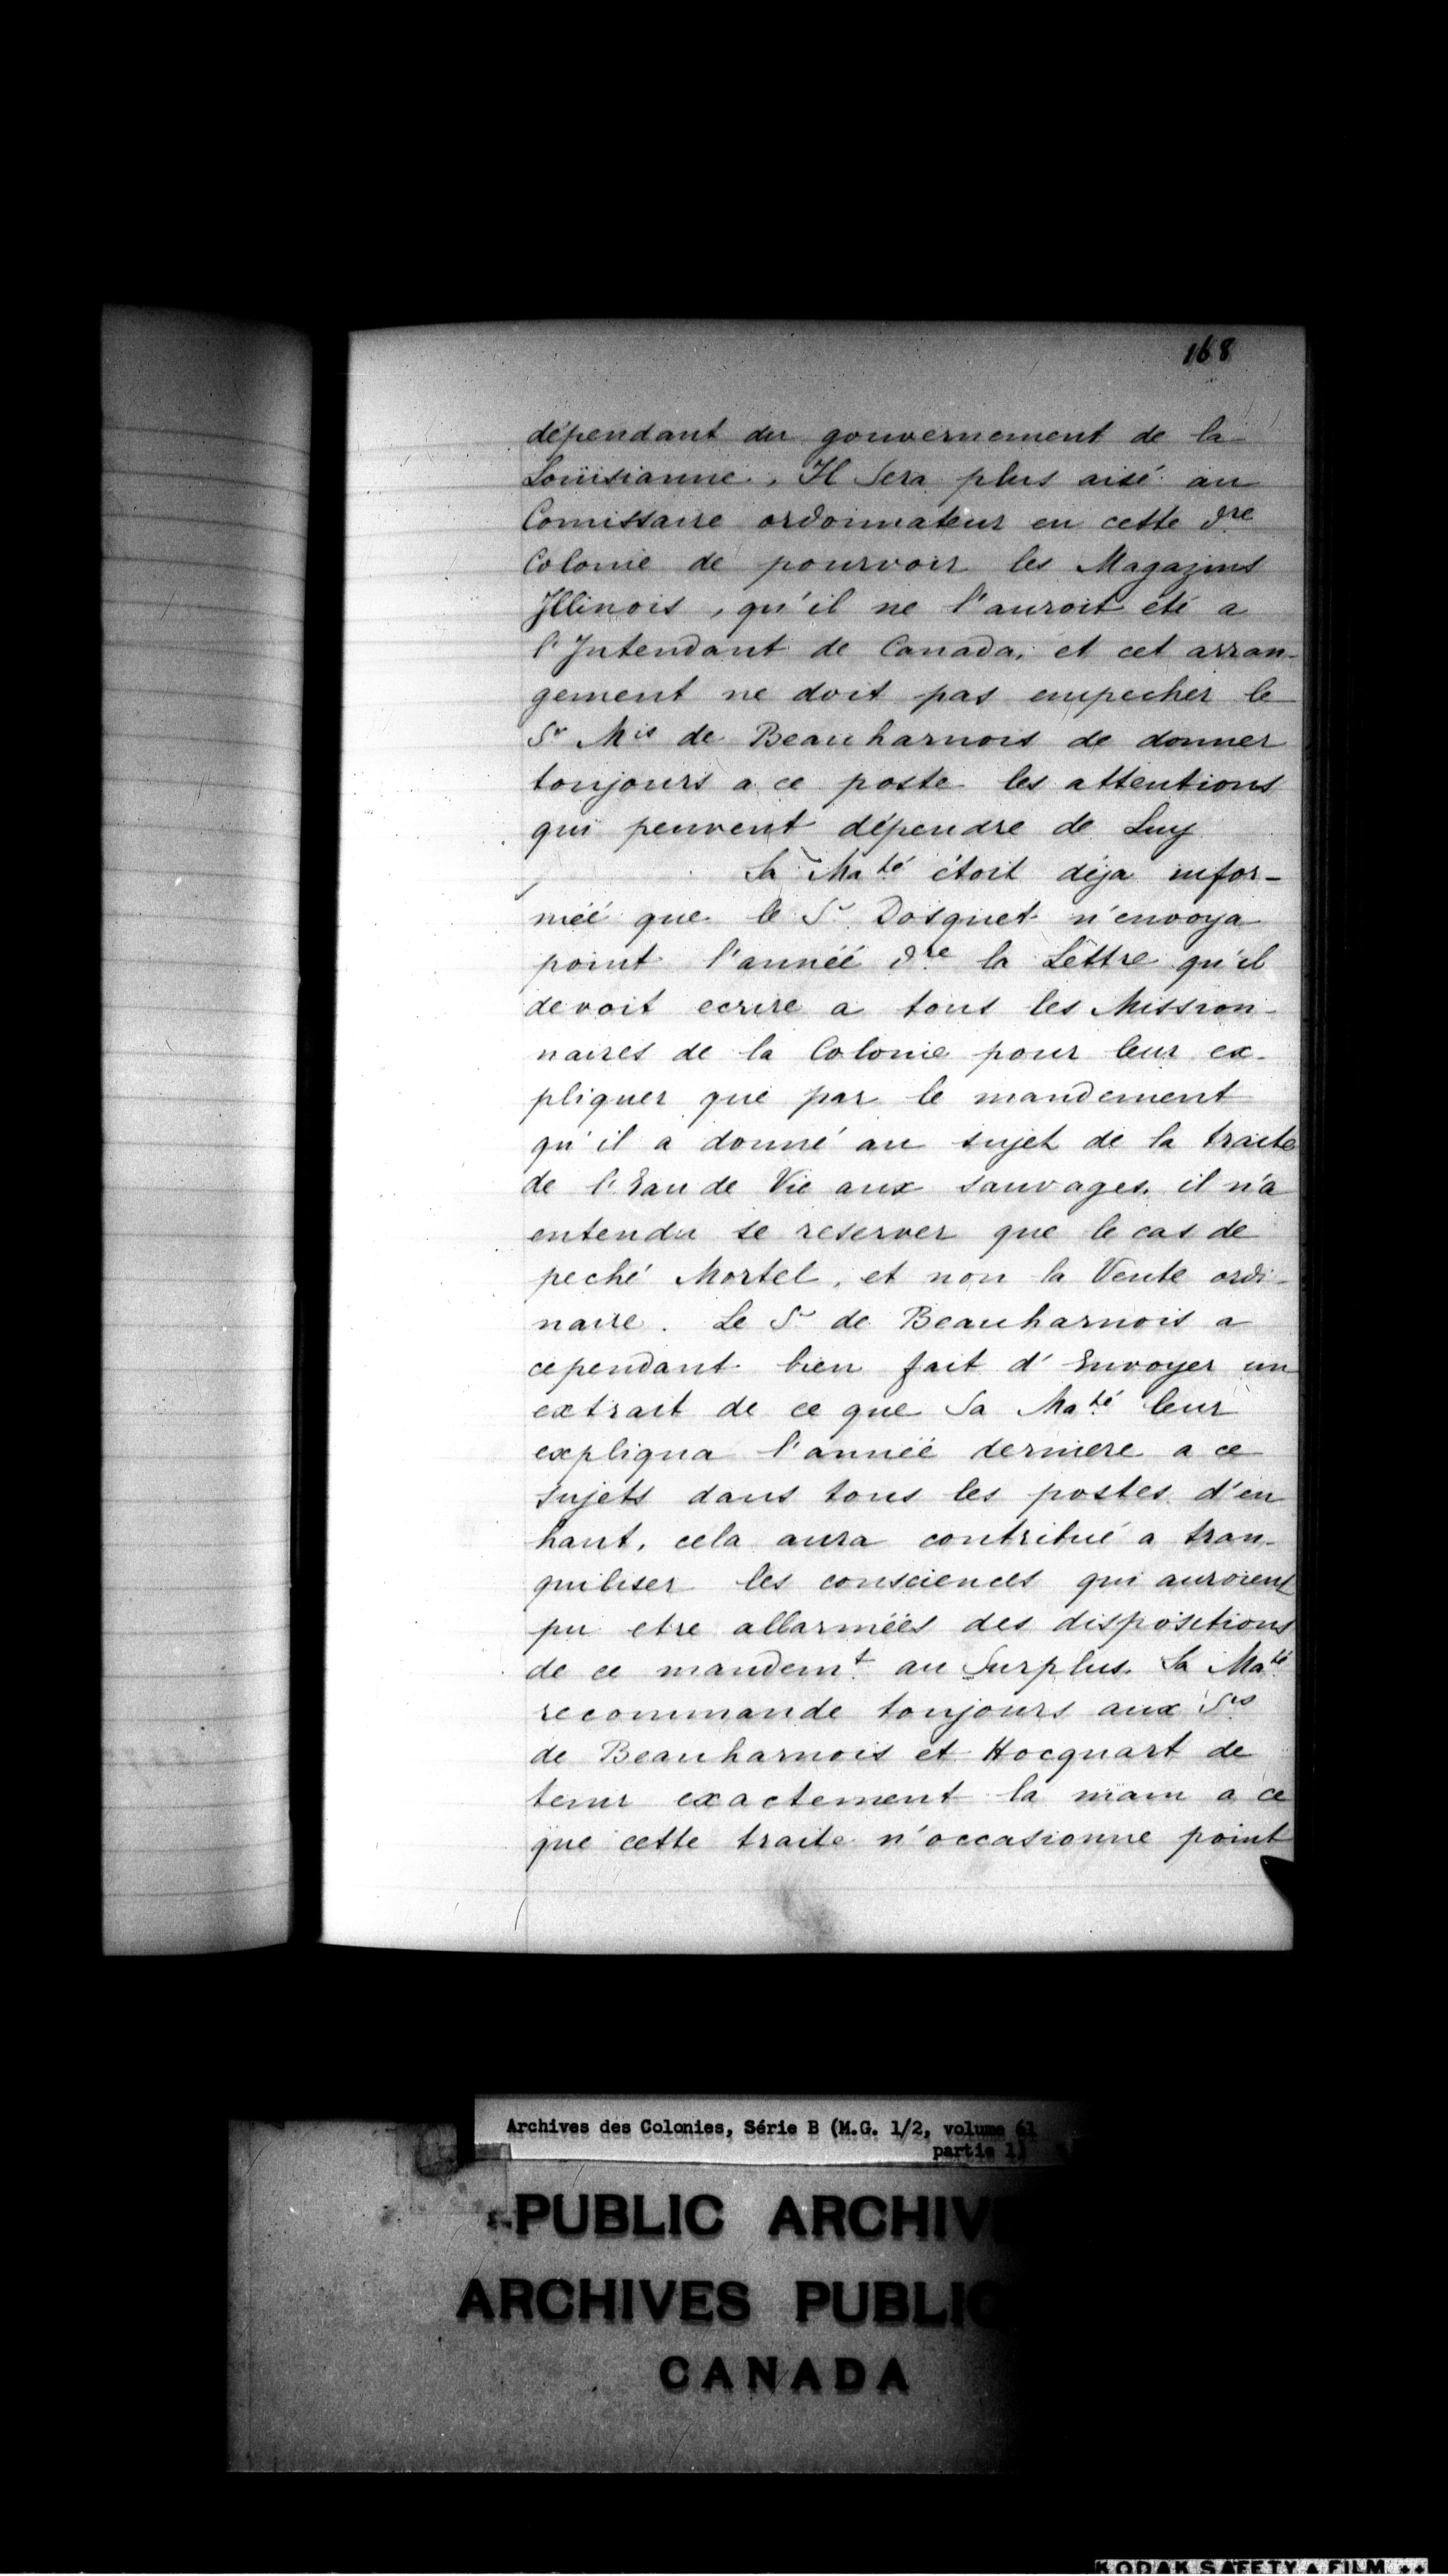 168
dépendant du gouvernement de la
Loüisianne, Il Sera plus aisé au
Comissaire ordonnateur en cette dre
Colonie de pourvoir les Magazins
Illinois, qu'il ne l'auroit été a
l'Intendant de Canada, et cet arran-
gement ne doit pas empecher le
Sr Mis de Beauharnois de donner
toujours a ce poste les attentions
qui peuvent dépendre de Luy
Sa Maté étoit déja infor-
méé que le Sr Dosquet n'envoya
point l'annéé dre la Lettre qu'il
devoit ecrire a tous les Mission-
naires de la Colonie pour leur ex-
pliquer que par le mandement
qu'il a donné au sujet de la traite
de l'Eau de Vie aux sauvages, il n'a
entendu se reserver que le cas de
peché Mortel, et non la Vente ordi-
naire. Le Sr de Beauharnois a
cependant bien fait d'Envoyer un
extrait de ce que Sa Maté leur
expliqua l'annéé derniere a ce
Sujets dans tous les postes d'en
haut, cela aura contribué a tran-
quiliser les consciences qui auroient
pu etre allarméés des dispositions
de ce mandemt au Surplus. Sa Maté
recommande toujours aux Srs
de Beauharnois et Hocquart de
tenir exactement la main a ce
que cette traite n'occasionne point
Archives des Colonies, Série B (M.G. 1/2, volume 61
partie 1)
PUBLIC ARCHIV
ARCHIVES PUBLIC
CANADA
KODAK SAFETY FILM